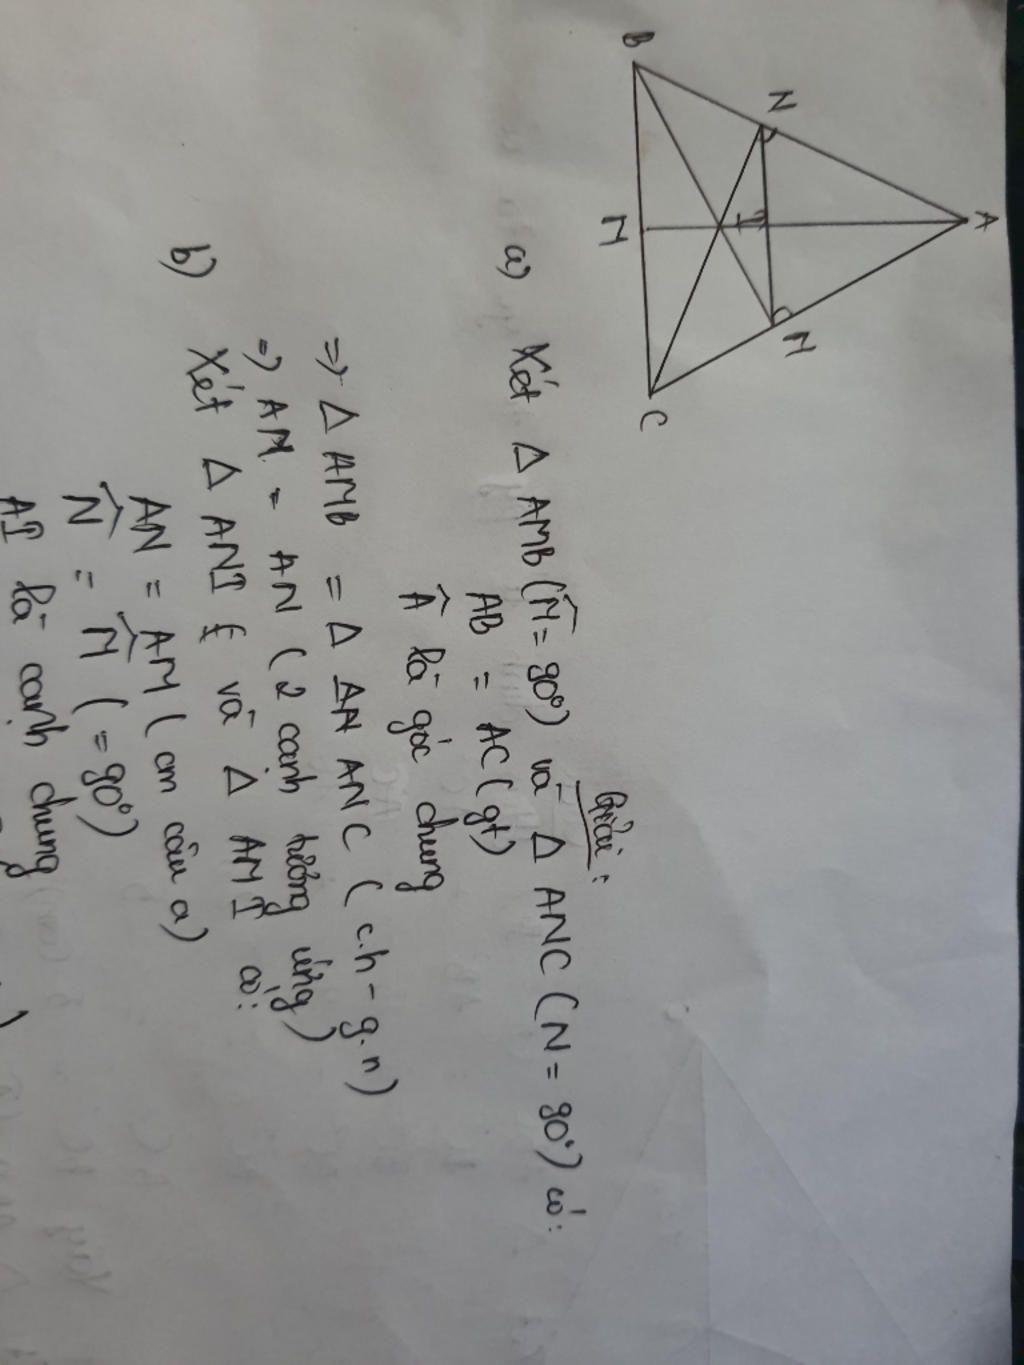 A
N
M
I
B
M
C
Giải:
a) Xét Δ AMB (M̂ = 90°) và Δ ANC (N = 90°) có:
AB = AC (gt)
Â là góc chung
=> Δ AMB = Δ ANC (c.h - g.n)
=> AM = AN (2 cạnh tương ứng)
b) Xét Δ ANI và Δ AMI có:
AN = AM (cm câu a)
N̂ = M̂ (= 90°)
AI là cạnh chung